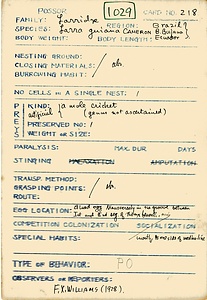 POSSOR 1029 CARD NO. 218
FAMILY: Larridae REGION: Brazil?
SPECIES: Larra guiana CAMERON B. Guiana
BODY WEIGHT: BODY LENGTH: Ecuador
NESTING GROUND:
CLOSING MATERIALS: ab.
BURROWING HABIT:
NO CELLS IN A SINGLE NEST: /
PREY KIND: a mole cricket
(genus not ascertained)
PRESERVED NO:
WEIGHT OR SIZE:
PARALYSIS: MAX. DUR. DAYS
STINGING MALAXATION AMPUTATION
TRANSP. METHOD:
GRASPING POINTS: ab.
ROUTE:
EGG LOCATION: transversely on the ground between
1st and 2nd leg of
COMPETITION COLONIZATION SOCIALIZATION
SPECIAL HABITS: mostly
TYPE OF BEHAVIOR: PO
OBSERVERS OR REPORTERS:
F.X. WILLIAMS (1928).